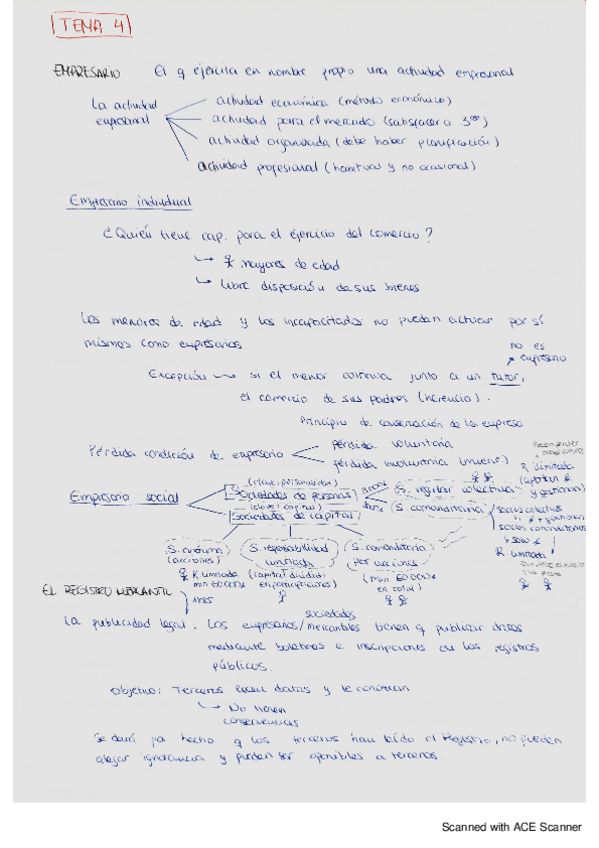 TEMA 4
EMPRESARIO El q ejercita en nombre propio una actividad empresarial
La actividad empresarial
actividad económica (método económico)
actividad para el mercado (satisfacer a 3ºs)
actividad organizada (debe haber planificación)
actividad profesional (habitual y no ocasional)
Empresario individual
¿Quién tiene cap. para el ejercicio del comercio?
mayores de edad
libre disposición de sus bienes
Los menores de edad y los incapacitados no pueden actuar por sí
mismos como empresarios.
no es
empresario
Excepción si el menor continua junto a un tutor,
el comercio de sus padres (herencia).
Principio de conservación de la empresa
Pérdida condición de empresario
pérdida voluntaria
pérdida involuntaria (muerte)
Empresario social
(clave: personalidad)
Sociedades de personas
(clave: capital)
Sociedades de capital
S. regular colectiva
S. comanditaria
R. ilimitada
socios colectivos
socios comanditarios
R. limitada
S. anónima
(acciones)
S. responsabilidad
limitada
S. comanditaria
por acciones
R. limitada
min 60000€
(capital dividido
en participaciones)
(min 60 000€
en total)
EL REGISTRO MERCANTIL
1885
La publicidad legal: Los empresarios/mercantiles tienen q publicar datos
sociedades
mediante boletines e inscripciones en los registros
públicos.
Objetivo: Terceros lean datos y le conozcan
No tienen
consecuencias
Se dará por hecho q los terceros han leído el Registro, no pueden
alegar ignorancia y pueden ser oponibles a terceros.
Scanned with ACE Scanner